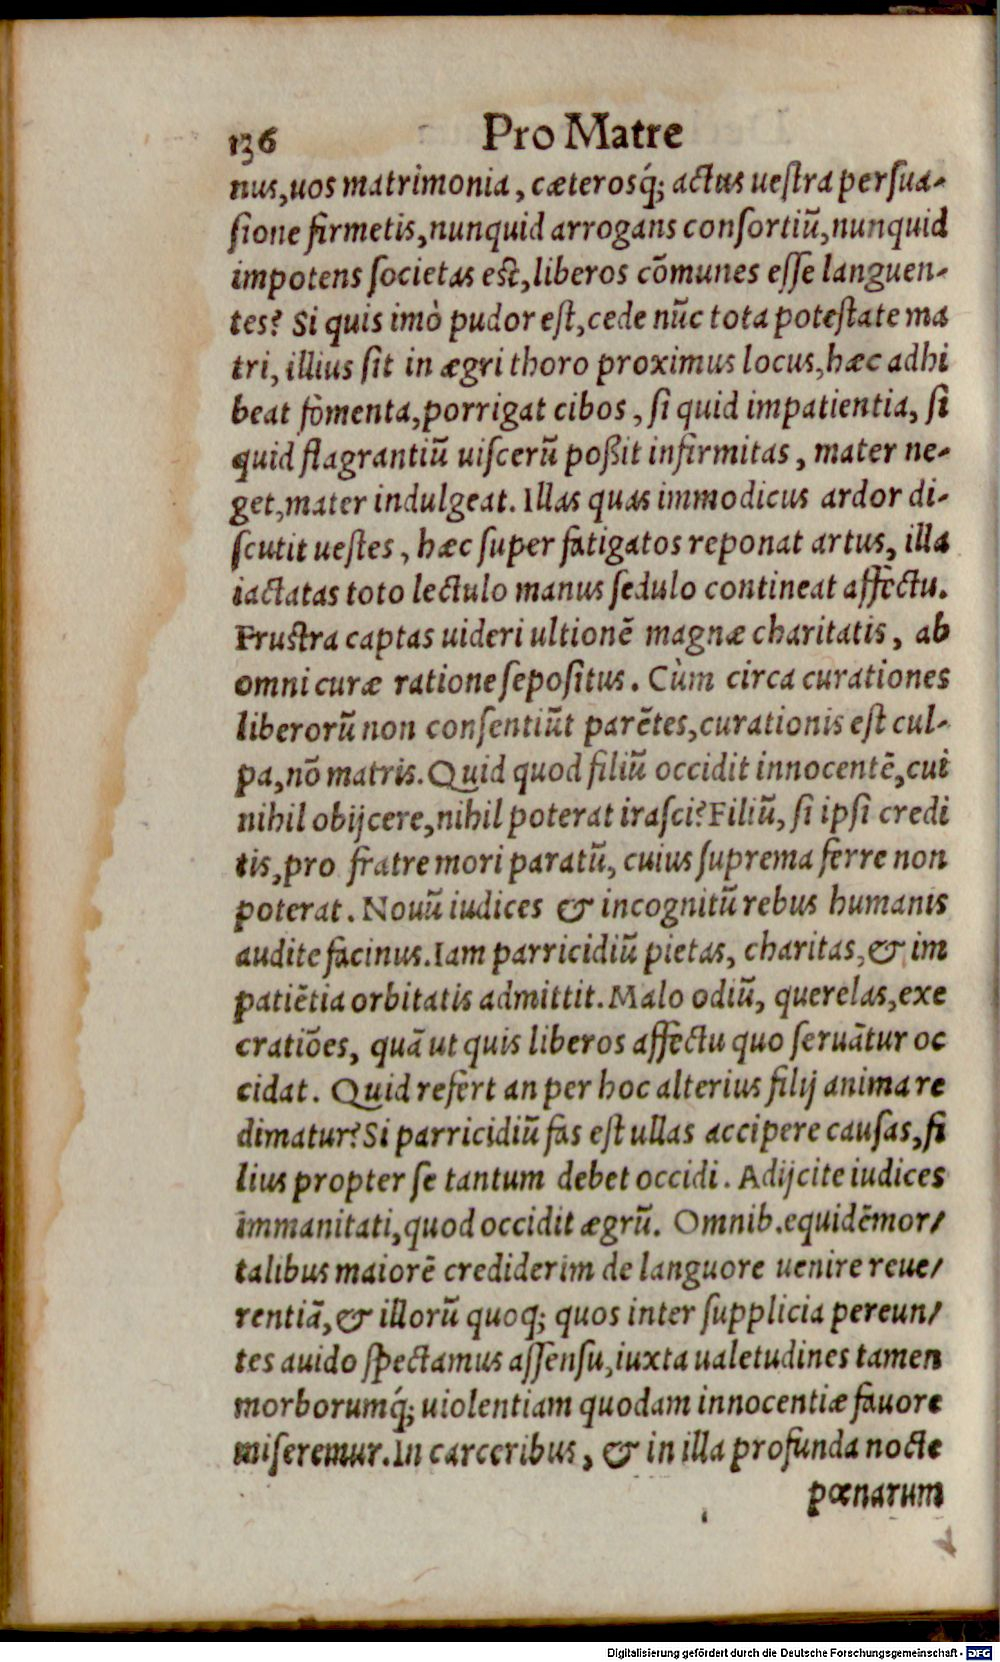 136 Pro Matre
nus, uos matrimonia, cæterosq́; actus uestra persua-
sione firmetis, nunquid arrogans consortiũ, nunquid
impotens societas est, liberos cõmunes esse languen-
tes? Si quis imò pudor est, cede nũc tota potestate ma
tri, illius sit in ægri thoro proximus locus, hæc adhi
beat fòmenta, porrigat cibos, si quid impatientia, si
quid flagrantiũ uiscerũ poßit infirmitas, mater ne-
get, mater indulgeat. Illas quas immodicus ardor di-
scutit uestes, hæc super fatigatos reponat artus, illa
iactatas toto lectulo manus sedulo contineat affectu.
Frustra captas uideri ultionẽ magnæ charitatis, ab
omni curæ ratione sepositus. Cùm circa curationes
liberorũ non consentiũt parẽtes, curationis est cul-
pa, nõ matris. Quid quod filiũ occidit innocentẽ, cui
nihil obijcere, nihil poterat irasci? Filiũ, si ipsi credi
tis, pro fratre mori paratũ, cuius suprema ferre non
poterat. Nouũ iudices & incognitũ rebus humanis
audite facinus. Iam parricidiũ pietas, charitas, & im
patiẽtia orbitatis admittit. Malo odiũ, querelas, exe
cratiões, quã ut quis liberos affectu quo seruãtur oc
cidat. Quid refert an per hoc alterius filij anima re
dimatur? Si parricidiũ fas est ullas accipere causas, fi
lius propter se tantum debet occidi. Adijcite iudices
immanitati, quod occidit ægrũ. Omnib. equidẽ mor/
talibus maiorẽ crediderim de languore uenire reue/
rentiã, & illorũ quoq; quos inter supplicia pereun/
tes auido spectamus assensu, iuxta ualetudines tamen
morborumq́; uiolentiam quodam innocentiæ fauore
miseremur. In carceribus, & in illa profunda nocte
pœnarum
Digitalisierung gefördert durch die Deutsche Forschungsgemeinschaft - DFG